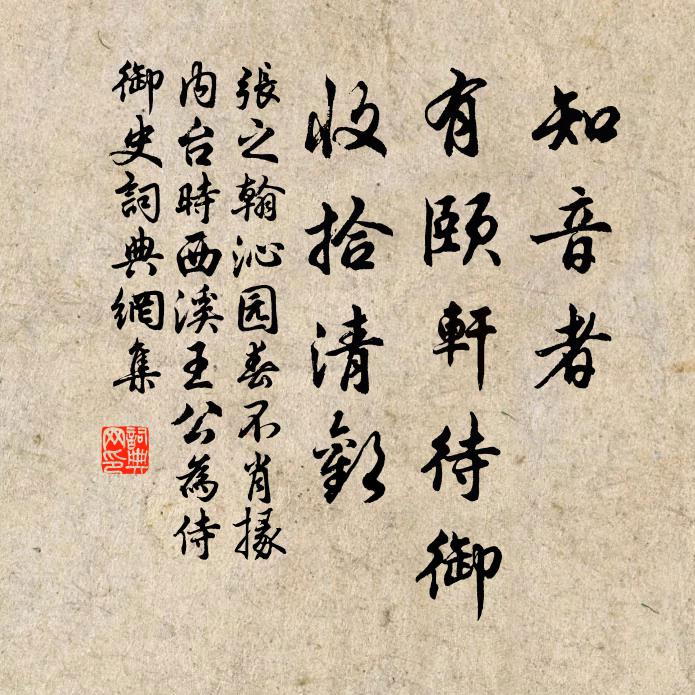 知音者
有頤軒待御
收拾清歡
張之翰沁园春不肖掾
内台時西溪王公為侍
御史詞典網集
詞典
网印